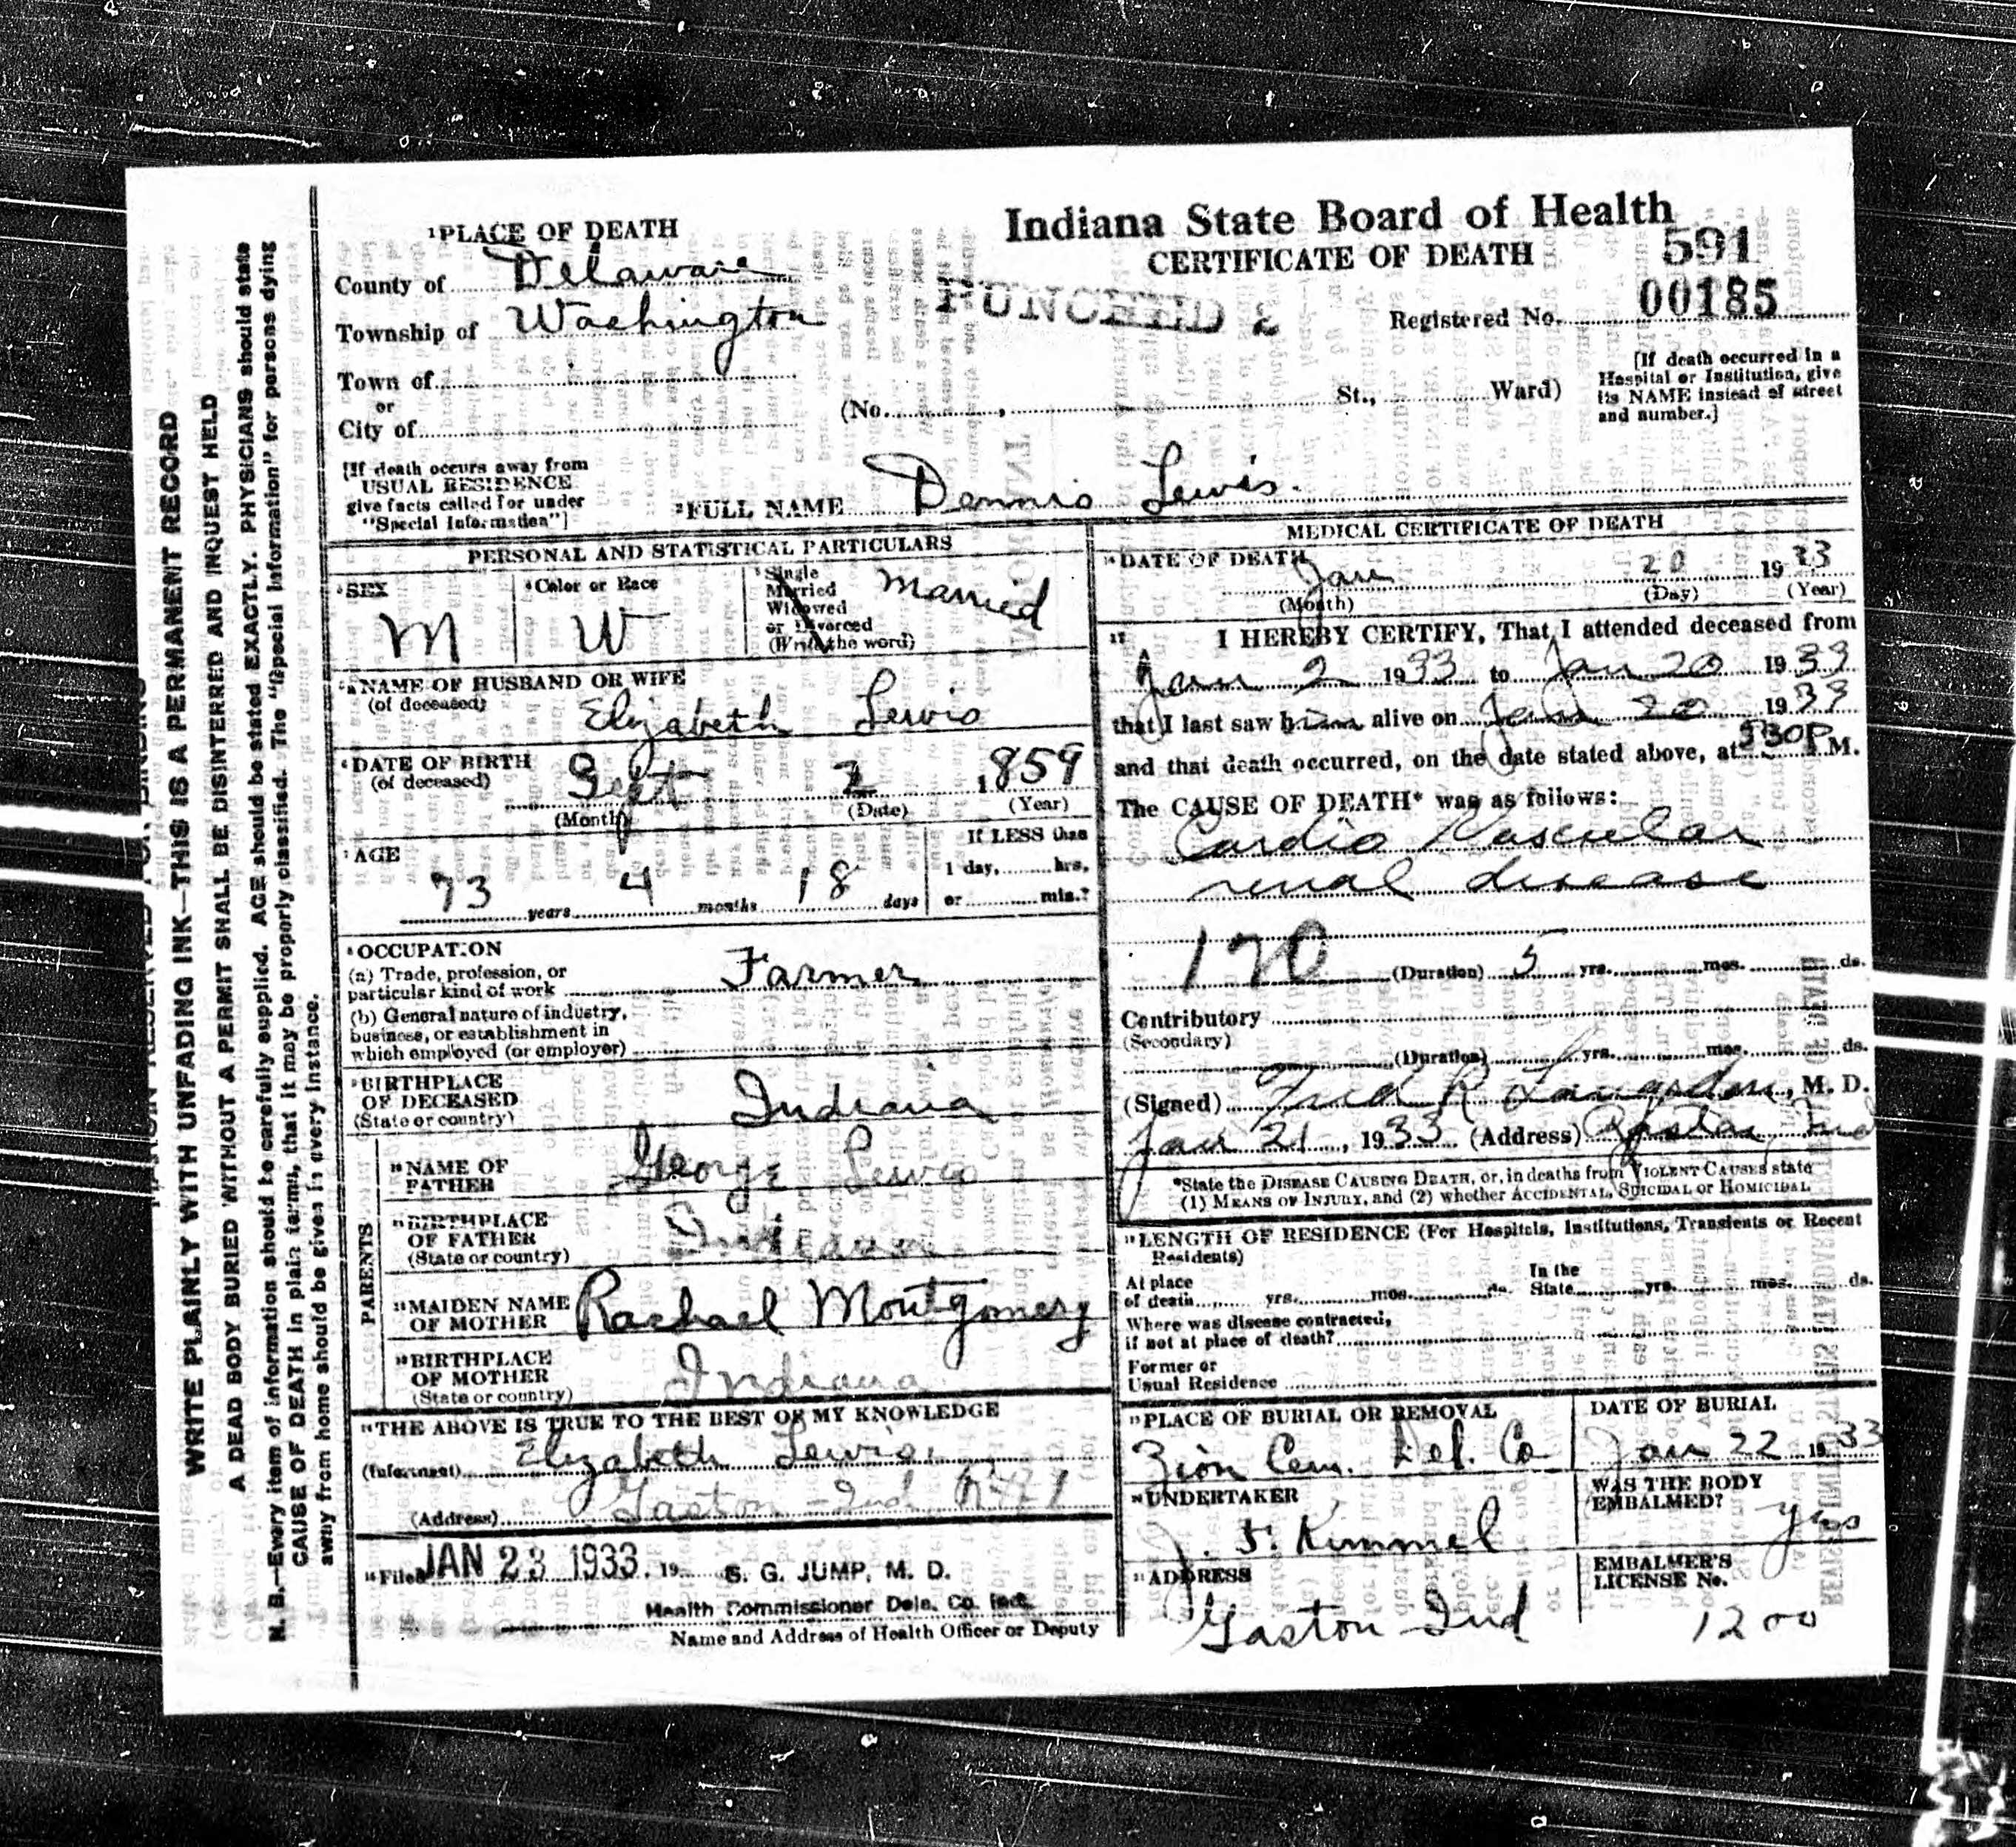 Indiana State Board of Health
CERTIFICATE OF DEATH
591
PUNCHED 2
Registered No. 00185
1 PLACE OF DEATH
County of Delaware
Township of Washington
Town of
or
City of
(No. , St., Ward)
[If death occurred in a
Hospital or Institution, give
its NAME instead of street
and number.]
[If death occurs away from
USUAL RESIDENCE
give facts called for under
"Special Information"]
2 FULL NAME Dennis Lewis.
PERSONAL AND STATISTICAL PARTICULARS
3 SEX
M
4 Color or Race
W
5 Single
Married
Widowed
or Divorced
(Write the word)
Married
5a NAME OF HUSBAND OR WIFE
(of deceased)
Elizabeth Lewis
6 DATE OF BIRTH
(of deceased)
Sept 2 1859
(Month) (Date) (Year)
7 AGE
73 years 4 months 18 days
If LESS than
1 day, hrs,
or min.?
8 OCCUPATION
(a) Trade, profession, or
particular kind of work Farmer
(b) General nature of industry,
business, or establishment in
which employed (or employer)
9 BIRTHPLACE
OF DECEASED
(State or country)
Indiana
PARENTS
10 NAME OF
FATHER
George Lewis
11 BIRTHPLACE
OF FATHER
(State or country)
Indiana
12 MAIDEN NAME
OF MOTHER
Rachael Montgomery
13 BIRTHPLACE
OF MOTHER
(State or country)
Indiana
14 THE ABOVE IS TRUE TO THE BEST OF MY KNOWLEDGE
(Informant) Elizabeth Lewis.
(Address) Gaston - Ind
15 Filed JAN 23 1933. 19 S. G. JUMP, M. D.
Health Commissioner Dela. Co. Ind.
Name and Address of Health Officer or Deputy
MEDICAL CERTIFICATE OF DEATH
16 DATE OF DEATH
Jan 20 1933
(Month) (Day) (Year)
17 I HEREBY CERTIFY, That I attended deceased from
Jan 2 1933 to Jan 20 1933
that I last saw him alive on Jan 20 1933
and that death occurred, on the date stated above, at 530P M.
The CAUSE OF DEATH* was as follows:
Cardio Vascular
renal disease
(Duration) 5 yrs. mos. ds.
Contributory
(Secondary)
(Duration) yrs. mos. ds.
(Signed) Fred R Langsdon, M. D.
Jan 21, 1933 (Address) Gaston Ind
*State the DISEASE CAUSING DEATH, or, in deaths from VIOLENT CAUSES state
(1) MEANS OF INJURY, and (2) whether ACCIDENTAL, SUICIDAL or HOMICIDAL
18 LENGTH OF RESIDENCE (For Hospitals, Institutions, Transients or Recent
Residents)
At place
of death yrs. mos. ds.
In the
State yrs. mos. ds.
Where was disease contracted,
if not at place of death?
Former or
Usual Residence
19 PLACE OF BURIAL OR REMOVAL
Zion Cem. Del. Co
DATE OF BURIAL
Jan 22 1933
20 UNDERTAKER
J. F. Kimmel
WAS THE BODY
EMBALMED?
yes
21 ADDRESS
Gaston Ind
EMBALMER'S
LICENSE No.
1200
WRITE PLAINLY WITH UNFADING INK—THIS IS A PERMANENT RECORD
A DEAD BODY BURIED WITHOUT A PERMIT SHALL BE DISINTERRED AND INQUEST HELD
N. B.—Every item of information should be carefully supplied. AGE should be stated EXACTLY. PHYSICIANS should state
CAUSE OF DEATH in plain terms, that it may be properly classified. The "Special Information" for persons dying
away from home should be given in every instance.